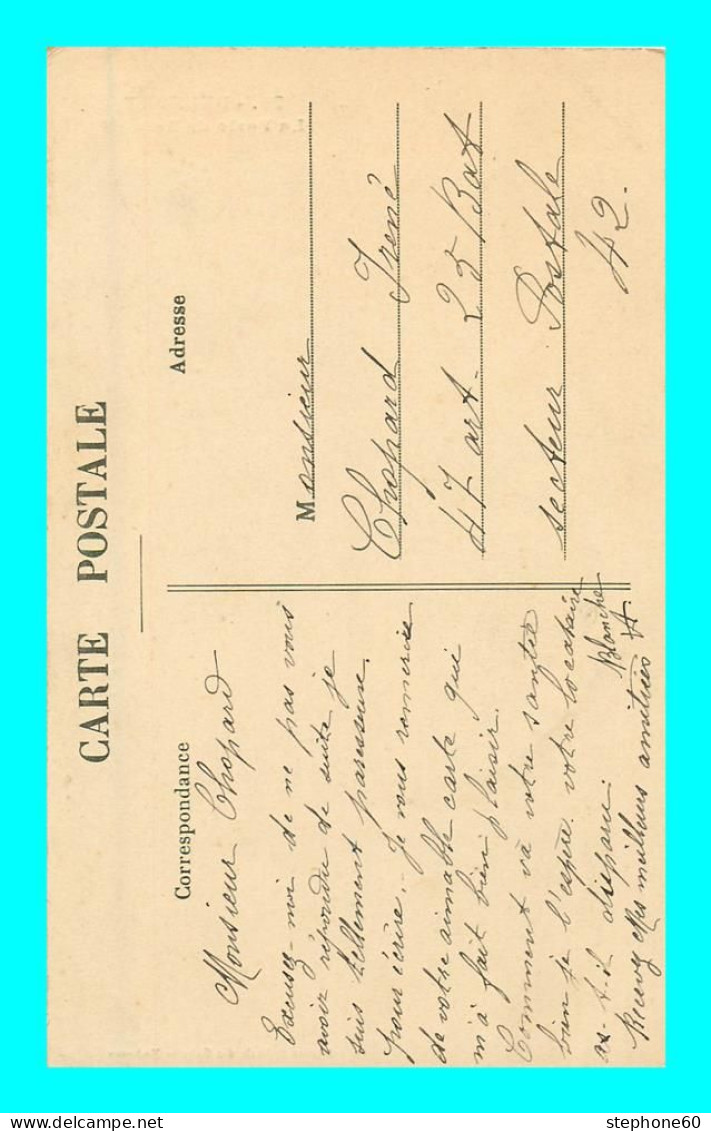 CARTE POSTALE
Correspondance
Monsieur Chopard
Excusez-moi de ne pas vous
avoir répondu de suite je
suis tellement paresseuse
pour écrire. - Je vous remercie
de votre aimable carte que
m'a fait bien plaisir.
Comment va votre santée
bien je l'espère. votre locataire
as-t-il disparu
Recevez Mes meilleurs amitiées
Blanche
Adresse
Monsieur
Chopard Irené
47 art - 25 Bat
secteur Postale
42.
stephone60